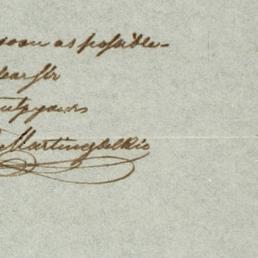 soon as possible-
dear Sir
truly yours
Martinez del Rio